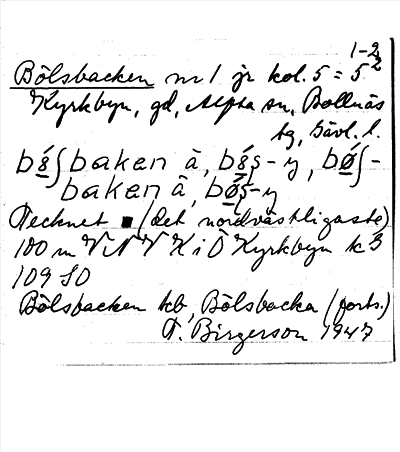 1-2
Bölsbacken nr 1 jr kol. 5 = 5²
Kyrkbyn, gd, Alfta sn, Bollnäs
tg, Gävl. l.
bȣ́ʃbaken à, bȣ́s̨-y, bǿʃ-
baken à, bǿs̨-y
Tecknet ■ (det nordvästligaste)
100 m VNV K i Ö Kyrkbyn k 3
109 SO
Bölsbacken kb, Bölsbacka (forts.)
T. Birgerson 1947